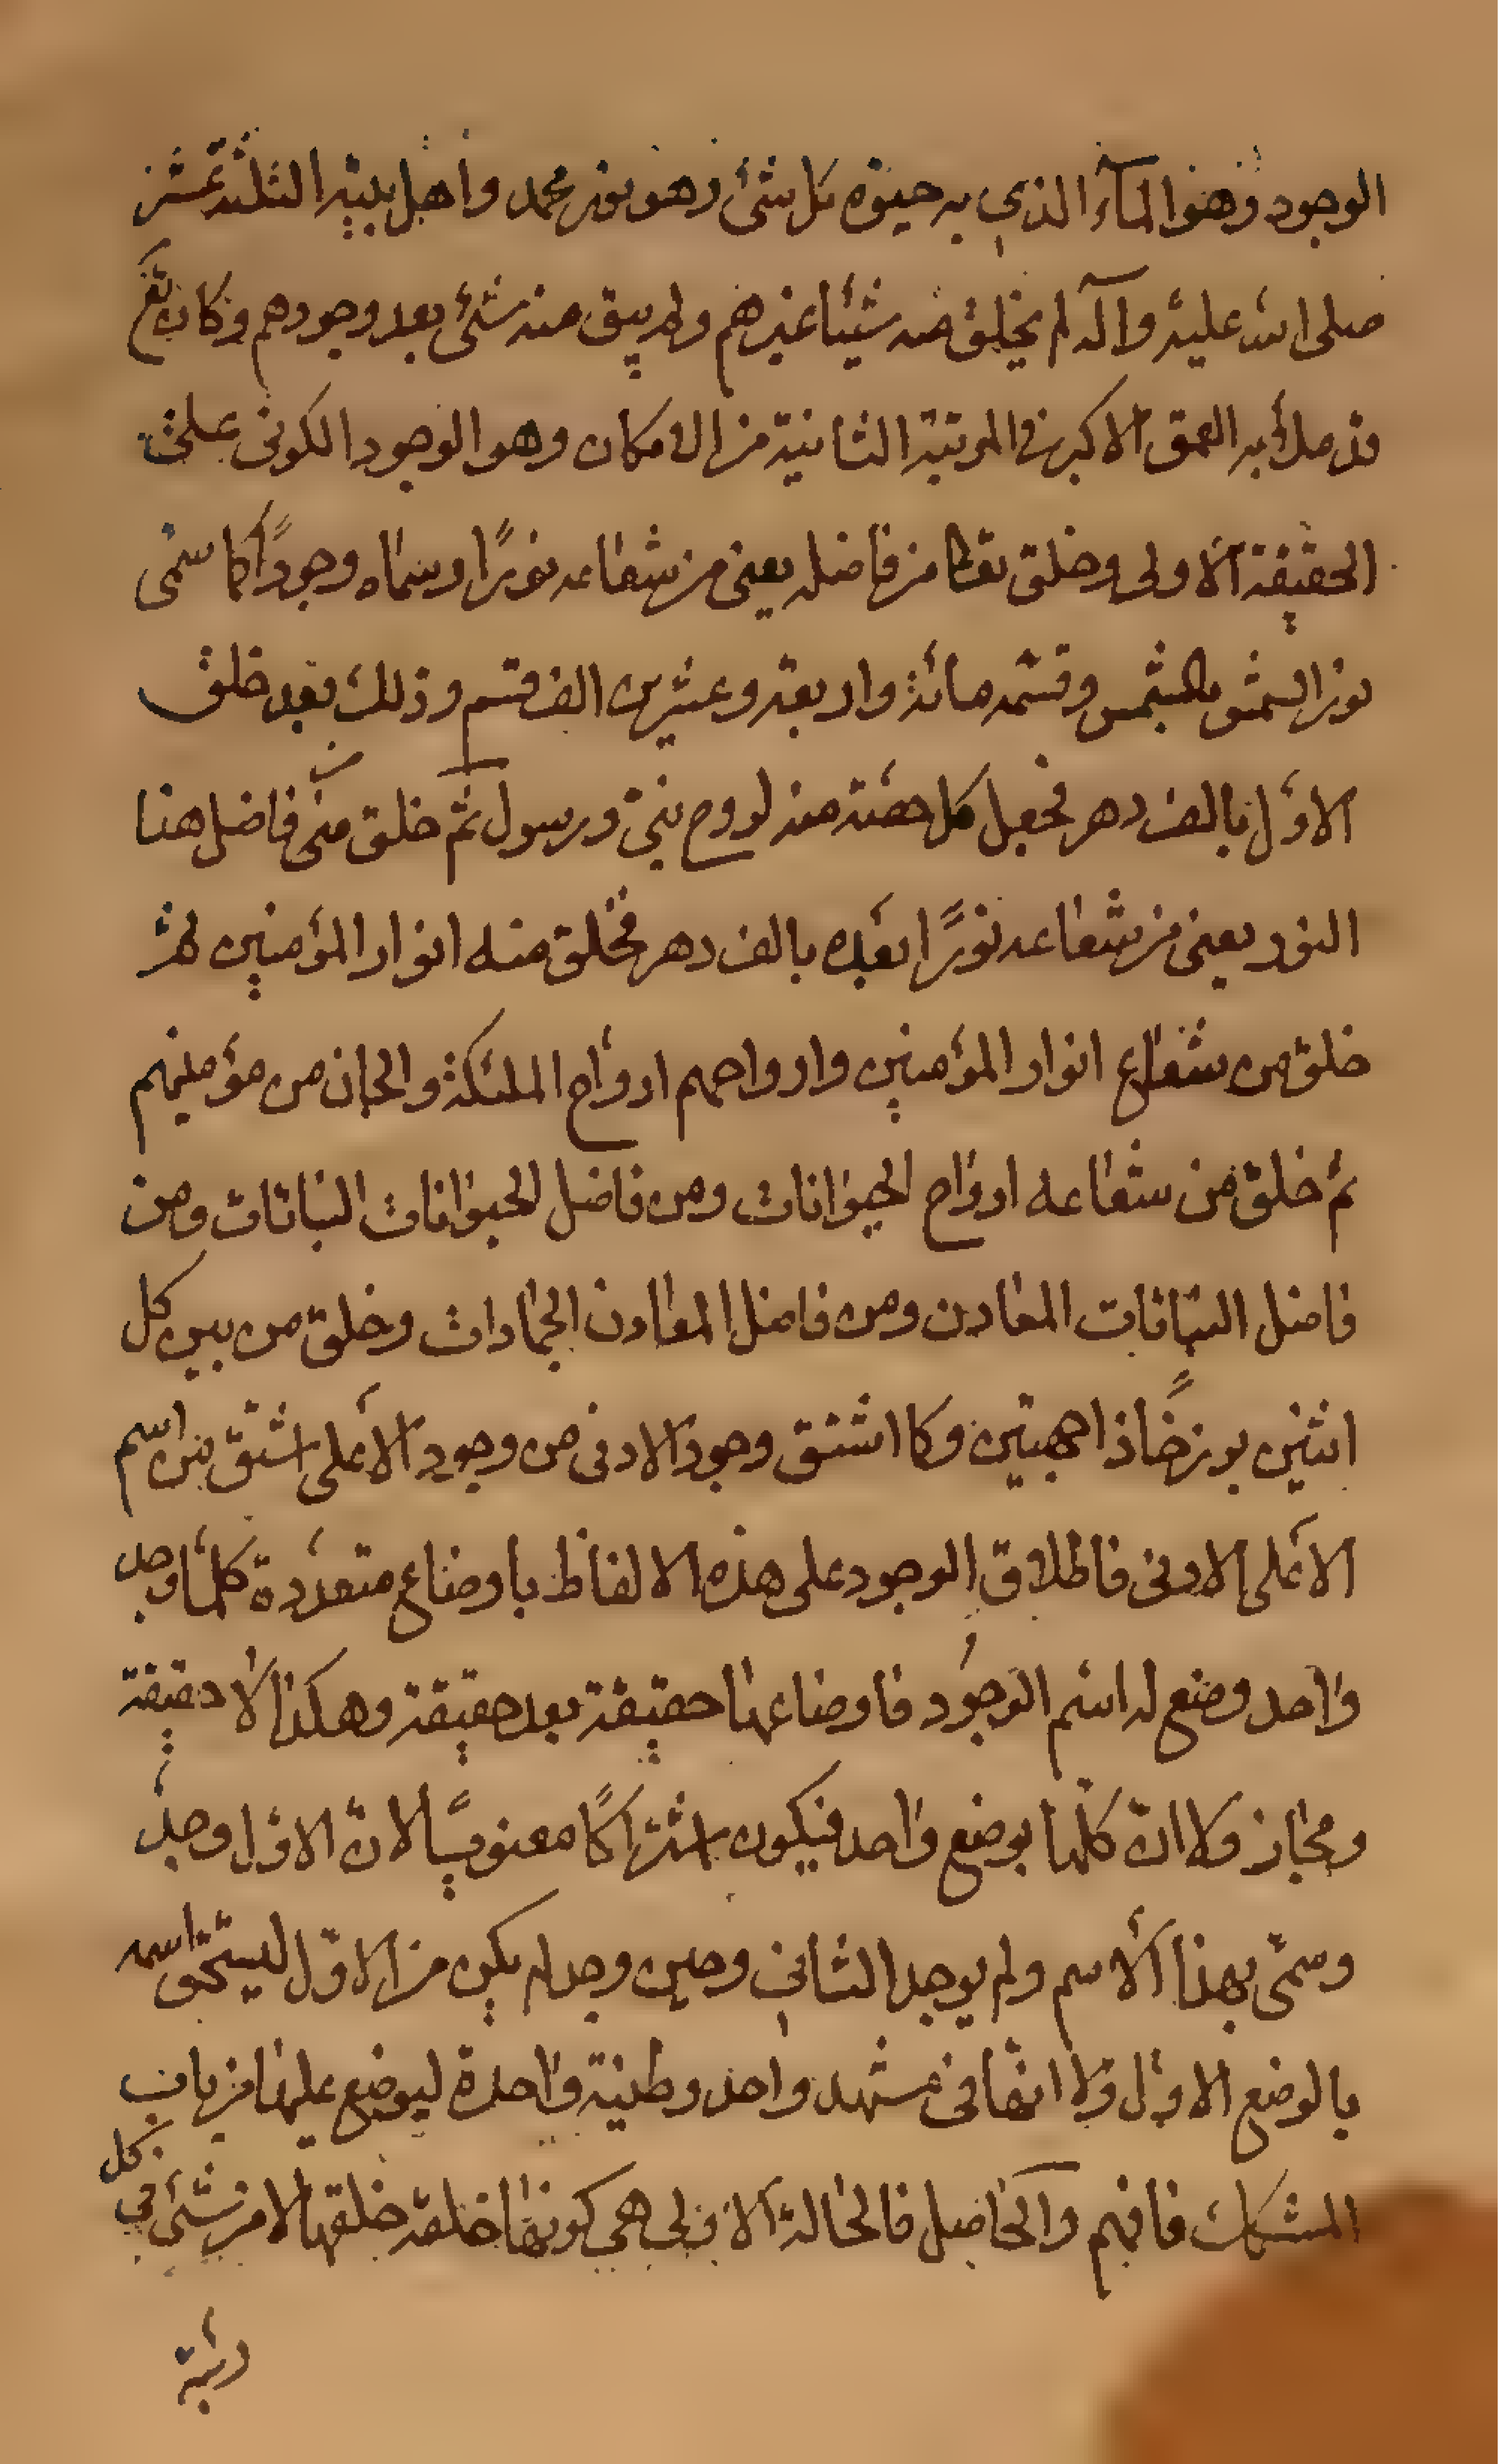 الوجود وهو المآء الذي به حيوة كل شئ وهو نور محمد واهل بيته الثلثة عشر
صلى الله عليه وآله لم يخلق منه شيئا غيرهم ولم يبق منه شئ بعد وجودهم وكان تع
قد ملأ به العمق الاكبر في المرتبة الثانية من الامكان وهو الوجود الكونى على
الحقيقة الاولى وخلق تعا من فاضله يعنى من شعاعه نورًا وسماه وجودًا كما سمى
نور الشمس بالشمس وقسّمه مائة واربعة وعشرين الف قسم وذلك بعد خلق
الاوّل بالف دهر فجعل كل حصّة منه لروح نبىّ ورسول ثمّ خلق من فاضل هذا
النور يعنى من شعاعه نورًا بعده بالف دهر فخلق منه انوار المؤمنين ثم
خلق من شعاع انوار المؤمنين وارواحهم ارواح الملئكة والجان من مؤمنيهم
ثم خلق من شعاعه ارواح الحيوانات ومن فاضل الحيوانات النباتات ومن
فاضل النباتات المعادن ومن فاضل المعادن الجمادات وخلق من بين كل
اثنين برزخًا ذا جهتين وكما اشتق وجود الادنى من وجود الاعلى اشتق من اسم
الاعلى الادنى فاطلاق الوجود على هذه الالفاظ باوضاع متعدّدة كلّما وجد
واحد وضع له اسم الوجود فاوضاعها حقيقة بعد حقيقة وهكذا لا حقيقة
ومجاز ولا انّ كلّها بوضع واحد فيكون اشتراكًا معنويًّا لانّ الاوّل وجد
وسمّى بهذا الاسم ولم يوجد الثانى وحين وجد لم يكن من الاوّل ليستحق اسمه
بالوضع الاوّل ولا انهما فى مشهد واحد وطينة واحدة ليوضع عليهما من باب
المشكك فافهم والحاصل فالحالة الاولى هي كونها خلقه خلقها لا من شئ في كل
رتبة